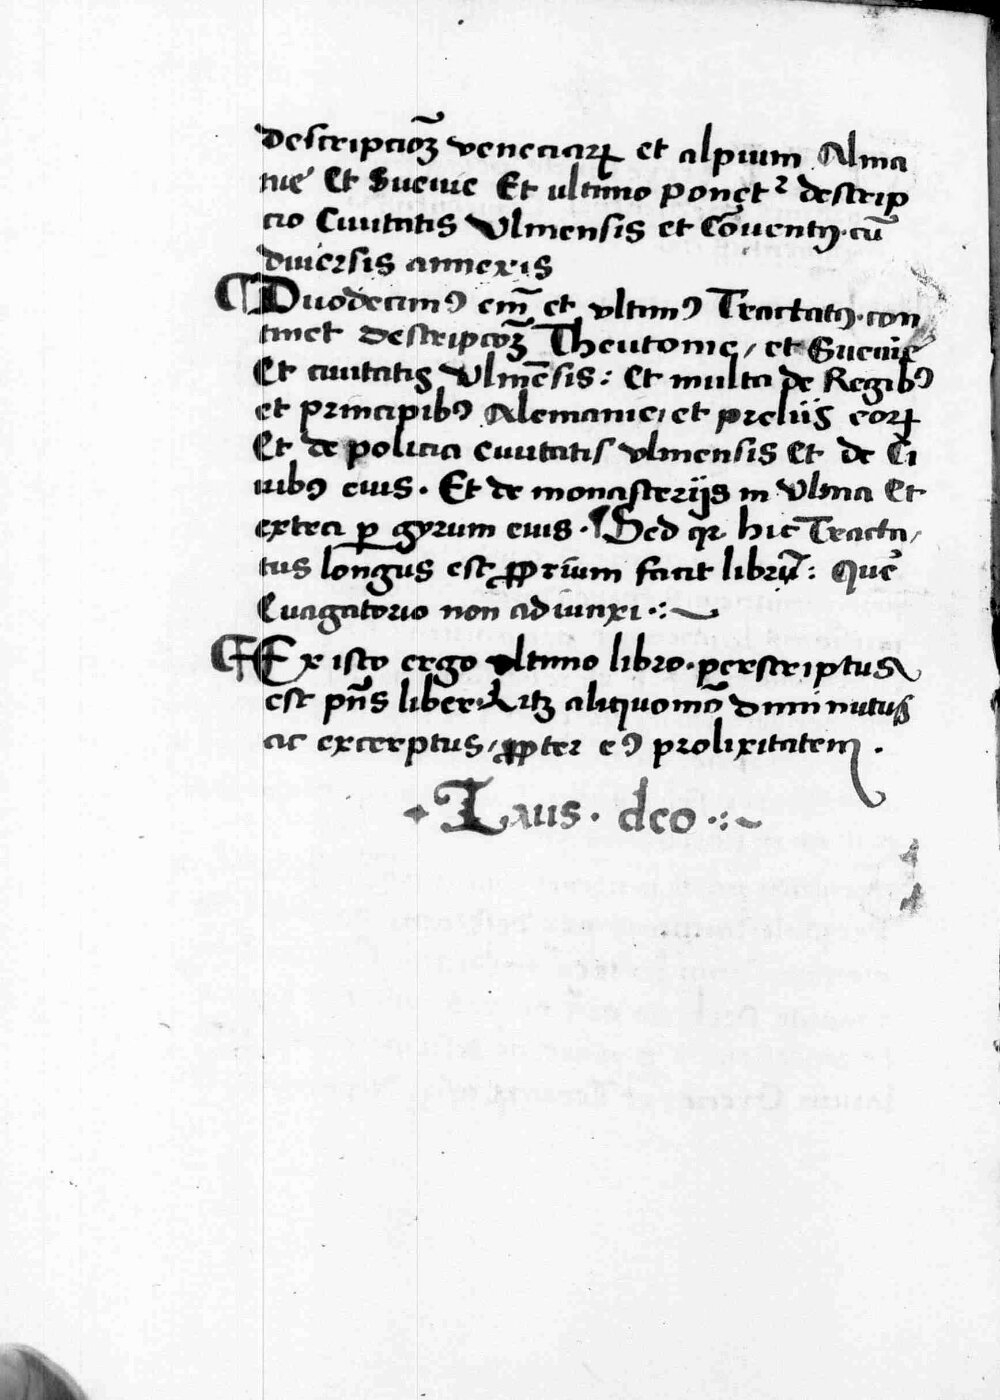 descripcioȝ veneciaꝝ et alpium Alma
nie Et Sueuie Et ultimo ponet᷑ descrip
cio Ciuitatis Vlmensis et Cōuentꝫ · cū
diuersis annexis
¶ Duodecimꝰ em̄ et vltimꝰ Tractatꝫ · con
tinet descripcōȝ Theutonie / et Sueuie
Et ciuitatis Vlmēsis : Et multa de Regibꝰ
et principibꝰ Alemanie / et preliis eoꝝ
Et de policia ciuitatis vlmensis Et de Ci
uibꝰ eius · Et de monasterijs in Vlma Et
extra ꝑ gyrum eius · ¶ Sed qꝛ hic Tracta /
tus longus est ꝓprium facit librū : Quē
Euagatorio non adiunxi · : ~
¶ Ex isto ergo vltimo libro · perscriptus
est pn̄s liber · litȝ aliquomō diminutus
ac excerptus / ꝓpter eꝰ prolixitatem .
Laus · deo · : ~